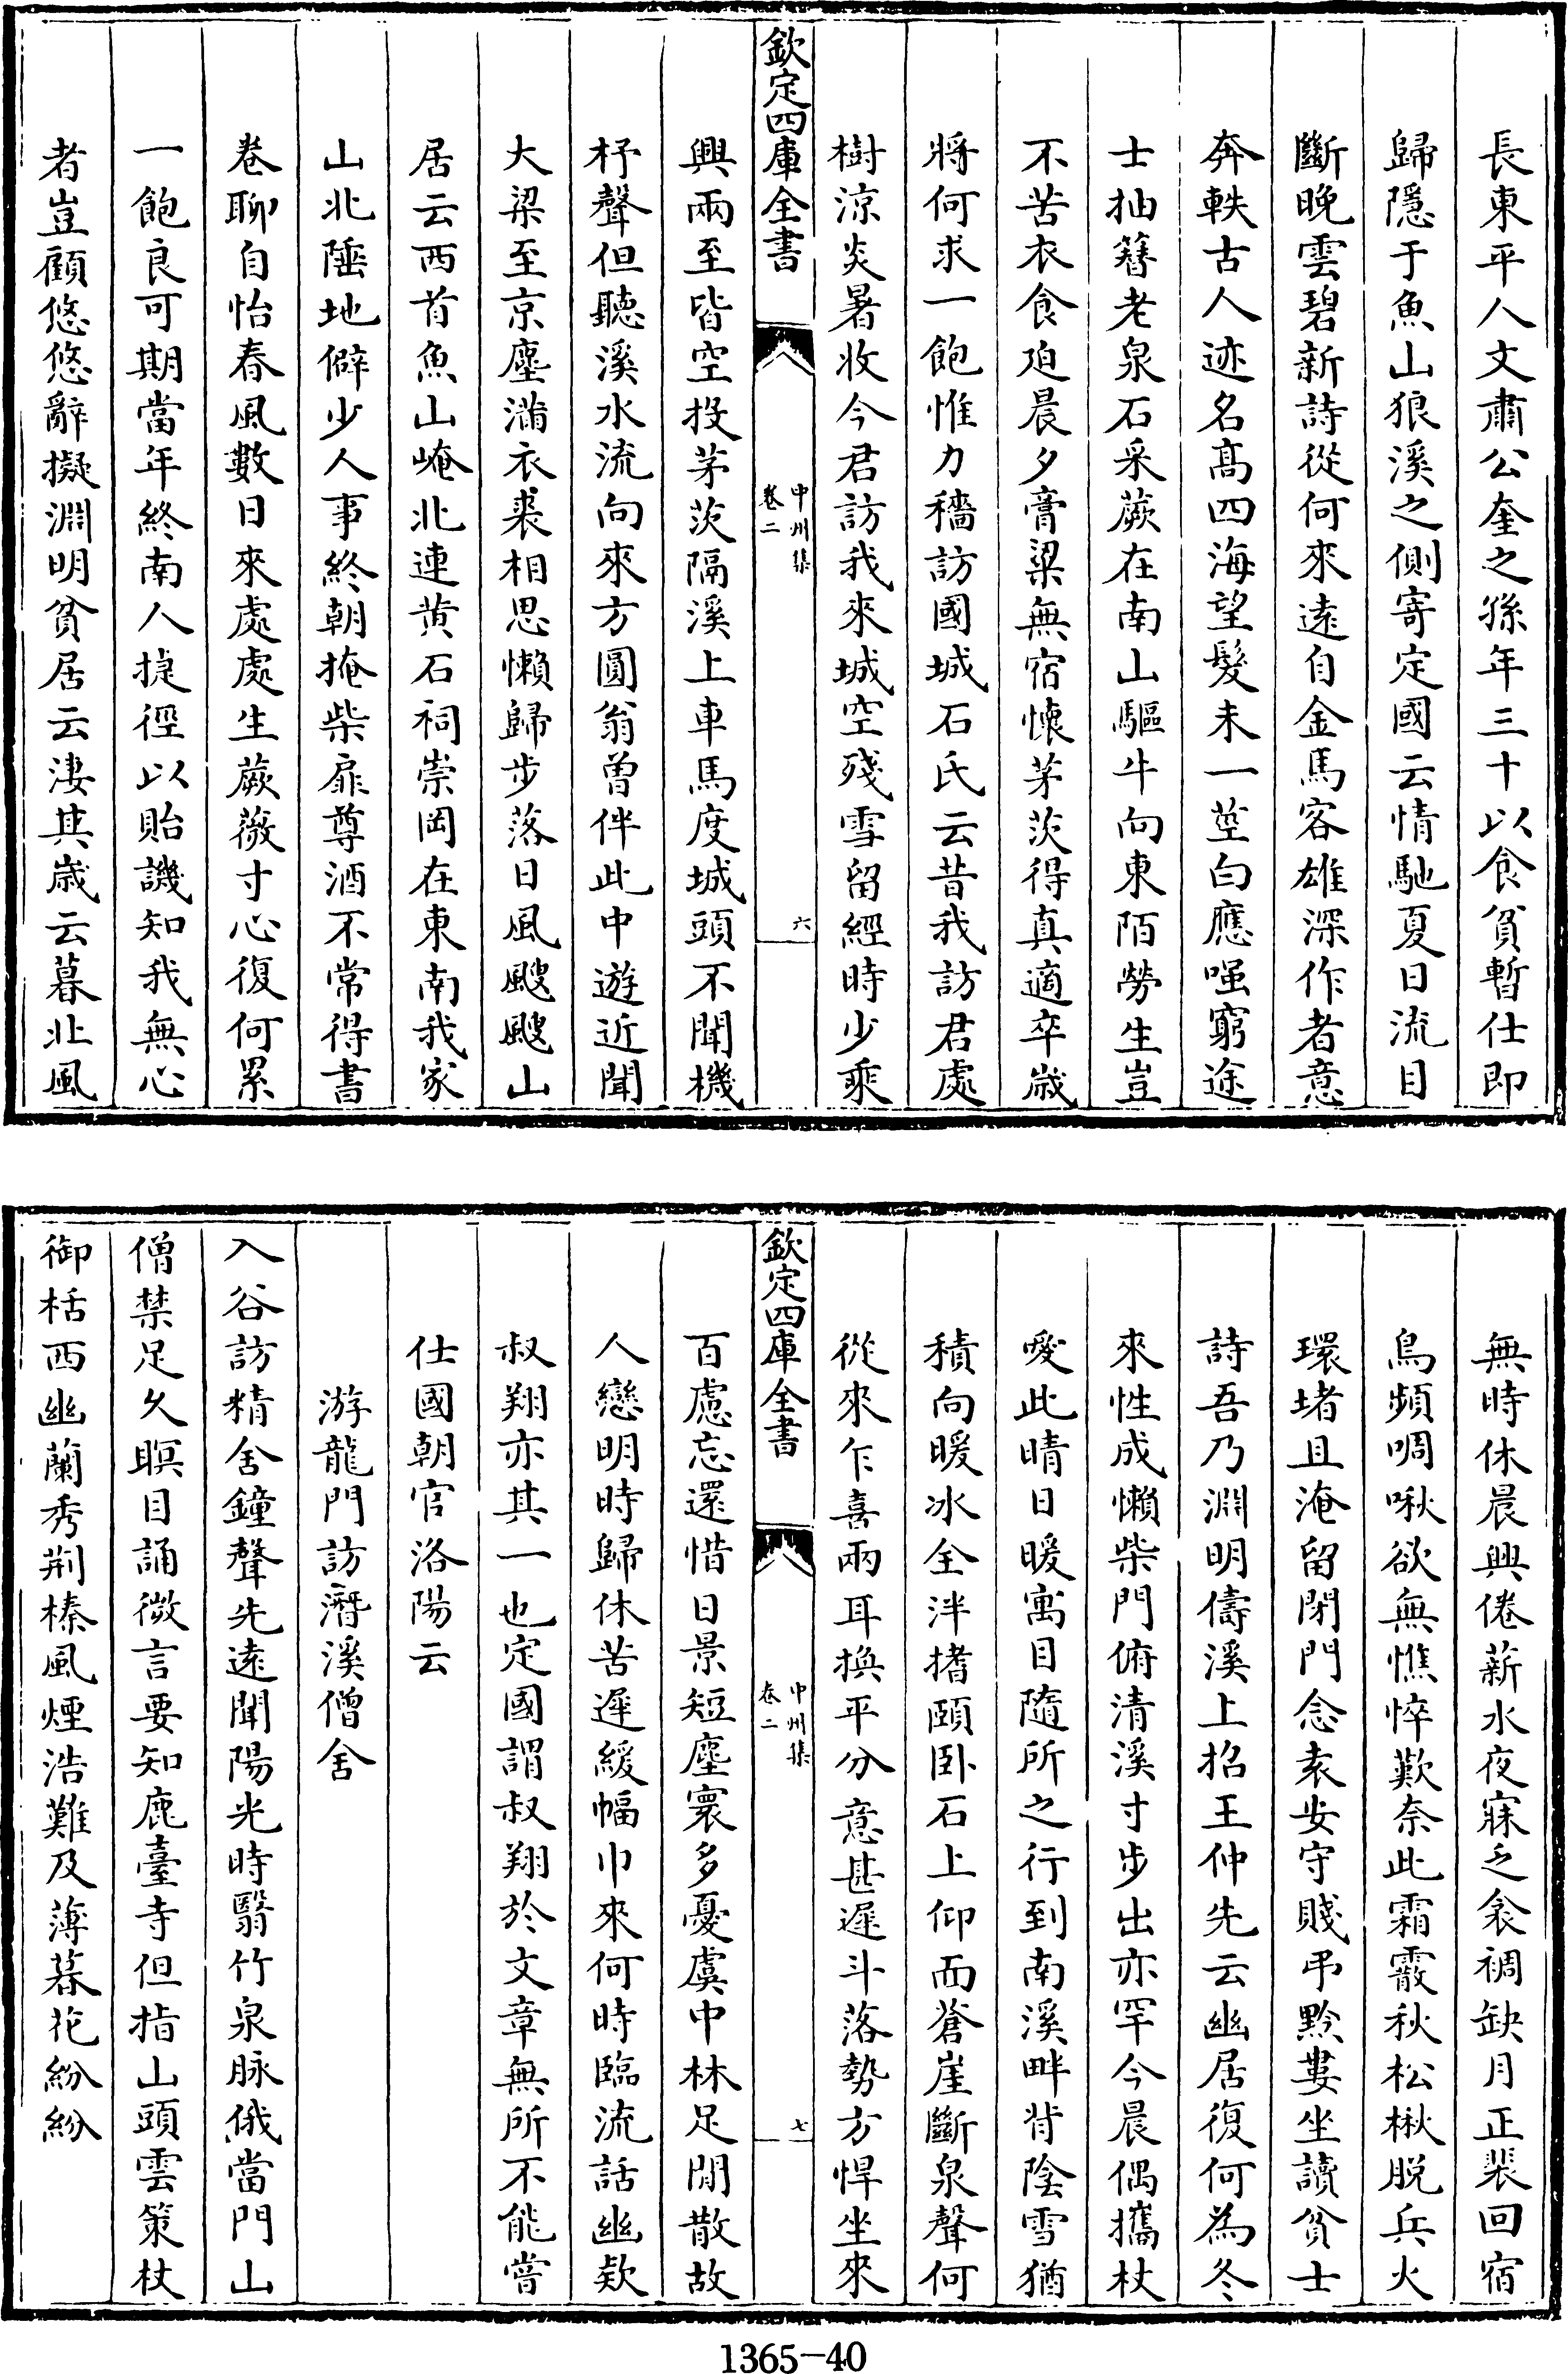 長東平人文肅公奎之孫年三十以食貧暫仕即
歸隱于魚山狼溪之側寄定國云情馳夏日流目
斷晚雲碧新詩從何來逺自金馬客雄深作者意
奔軼古人迹名髙四海望髮未一莖白應嗤窮途
士抽簪老泉石采蕨在南山驅牛向東陌勞生豈
不苦衣食廹晨夕膏粱無宿懐茅茨得真適卒歳
將何求一飽惟力穡訪國城石氏云昔我訪君處
樹涼炎暑收今君訪我來城空殘雪留經時少乘
欽定四庫全書
中州集
卷二
六
興兩至皆空投茅茨隔溪上車馬度城頭不聞機
杼聲但聽溪水流向來方圓翁曽伴此中遊近聞
大梁至京塵滿衣裘相思懶歸步落日風颼颼山
居云西首魚山崦北連黄石祠崇岡在東南我家
山北陲地僻少人事終朝掩柴扉尊酒不常得書
卷聊自怡春風數日來處處生蕨薇寸心復何累
一飽良可期當年終南人捷徑以貽譏知我無心
者豈顧悠悠辭擬淵明貧居云淒其歳云暮北風
無時休晨興倦薪水夜寐乏衾裯缺月正裴回宿
鳥頻啁啾欲無憔悴歎奈此霜霰秋松楸脱兵火
環堵且淹留閉門念袁安守賤弔黔婁坐讀貧士
詩吾乃淵明儔溪上招王仲先云幽居復何為冬
來性成懶柴門俯清溪寸步出亦罕今晨偶攜杖
愛此晴日暖寓目隨所之行到南溪畔背陰雪猶
積向暖冰全泮搘頤卧石上仰面蒼崖斷泉聲何
從來乍喜兩耳換平分意甚遲斗落勢方悍坐來
欽定四庫全書
中州集
卷二
七
百慮忘還惜日景短塵寰多憂虞中林足閒散故
人戀明時歸休苦遲緩幅巾來何時臨流話幽欵
叔翔亦其一也定國謂叔翔於文章無所不能嘗
仕國朝官洛陽云
游龍門訪潛溪僧舍
入谷訪精舍鐘聲先逺聞陽光時翳竹泉脉俄當門山
僧禁足久瞑目誦微言要知鹿臺寺但指山頭雲策杖
御栝西幽蘭秀荆榛風煙浩難及薄暮花紛紛
1365-40